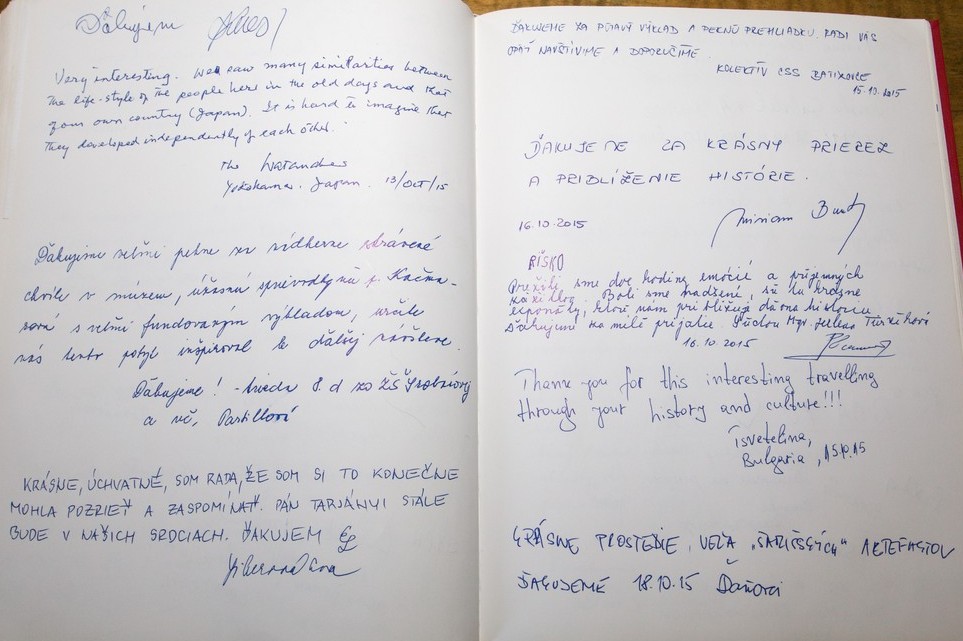 Ďakujem
Very interesting. We saw many similarities between
the life-style of the people here in the old days and that
of our own country (Japan). It is hard to imagine that
they developed independently of each other.
The Watanabes
Yokohama, Japan. 13/Oct/15
Ďakujeme veľmi pekne za nádherne strávené
chvíle v múzeu, úžasnú sprievodkyňu p.
s veľmi fundovaným výkladom, určite
nás tento pobyt inšpiroval k ďalšej návšteve.
Ďakujeme! - trieda 8. d zo ZŠ
a uč.
KRÁSNE, ÚCHVATNÉ, SOM RADA, ŽE SOM SI TO KONEČNE
MOHLA POZRIEŤ A ZASPOMÍNAŤ. PÁN TARJÁNYI STÁLE
BUDE V NAŠICH SRDCIACH. ĎAKUJEM
ĎAKUJEME ZA PÚTAVÝ VÝKLAD A PEKNÚ PREHLIADKU. RADI VÁS
OPÄŤ NAVŠTÍVIME A DOPORUČÍME.
KOLEKTÍV CSS
15.10.2015
ĎAKUJEME ZA KRÁSNY PRIEREZ
A PRIBLÍŽENIE HISTÓRIE.
16.10.2015 Miriam
RIŠKO
Prežili sme dve hodiny emócií a príjemných
zážitkov. Boli sme nadšení, sú tu krásne
exponáty, ktoré nám približujú dávnu históriu.
Ďakujeme za milé prijatie. S úctou Mgr.
16.10.2015
Thank you for this interesting travelling
through your history and culture!!!
Tsvetelina,
Bulgaria, 15.10.15
KRÁSNE PROSTEDIE, VEĽA ARTEFAKTOV
ĎAKUJEME 18.10.15